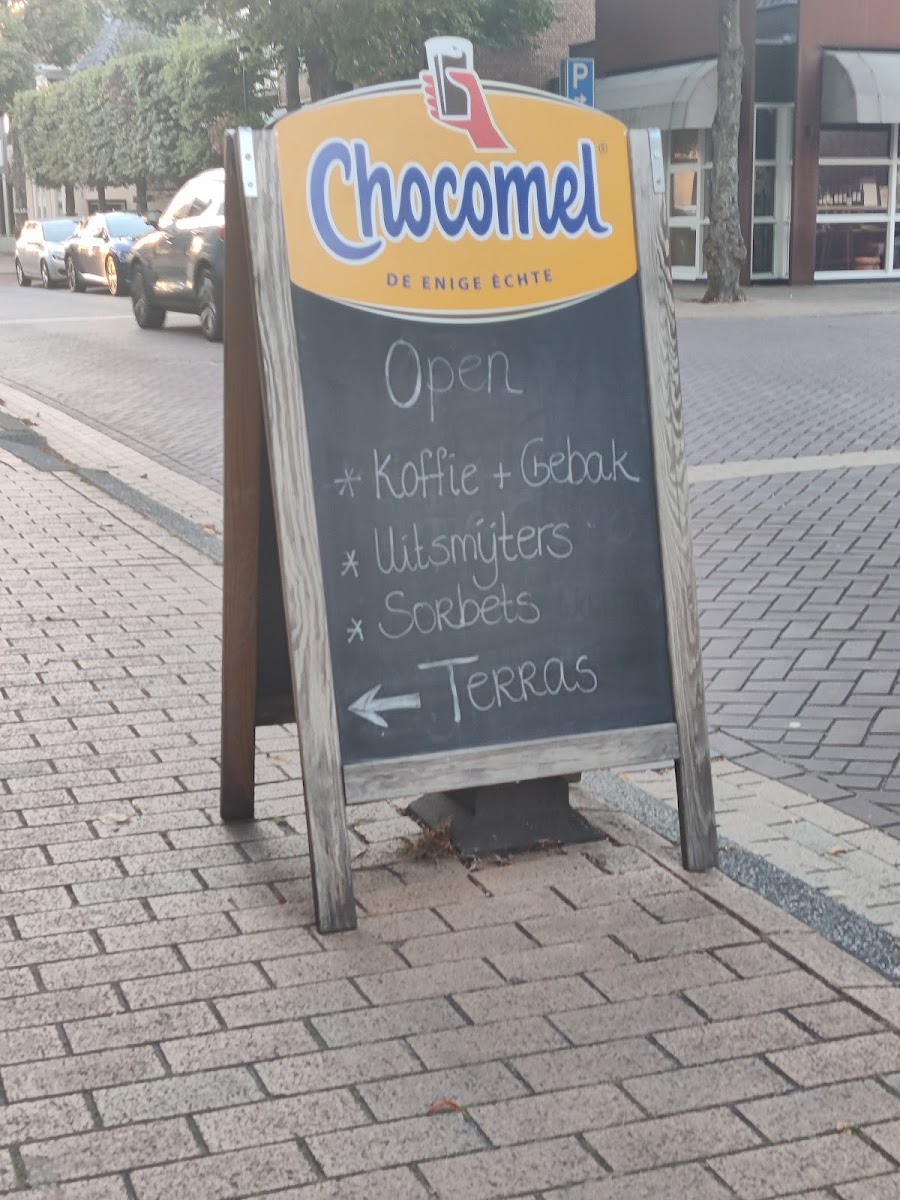 P
Chocomel®
DE ENIGE ÈCHTE
Open
* Koffie + Gebak
* Uitsmijters
* Sorbets
← Terras